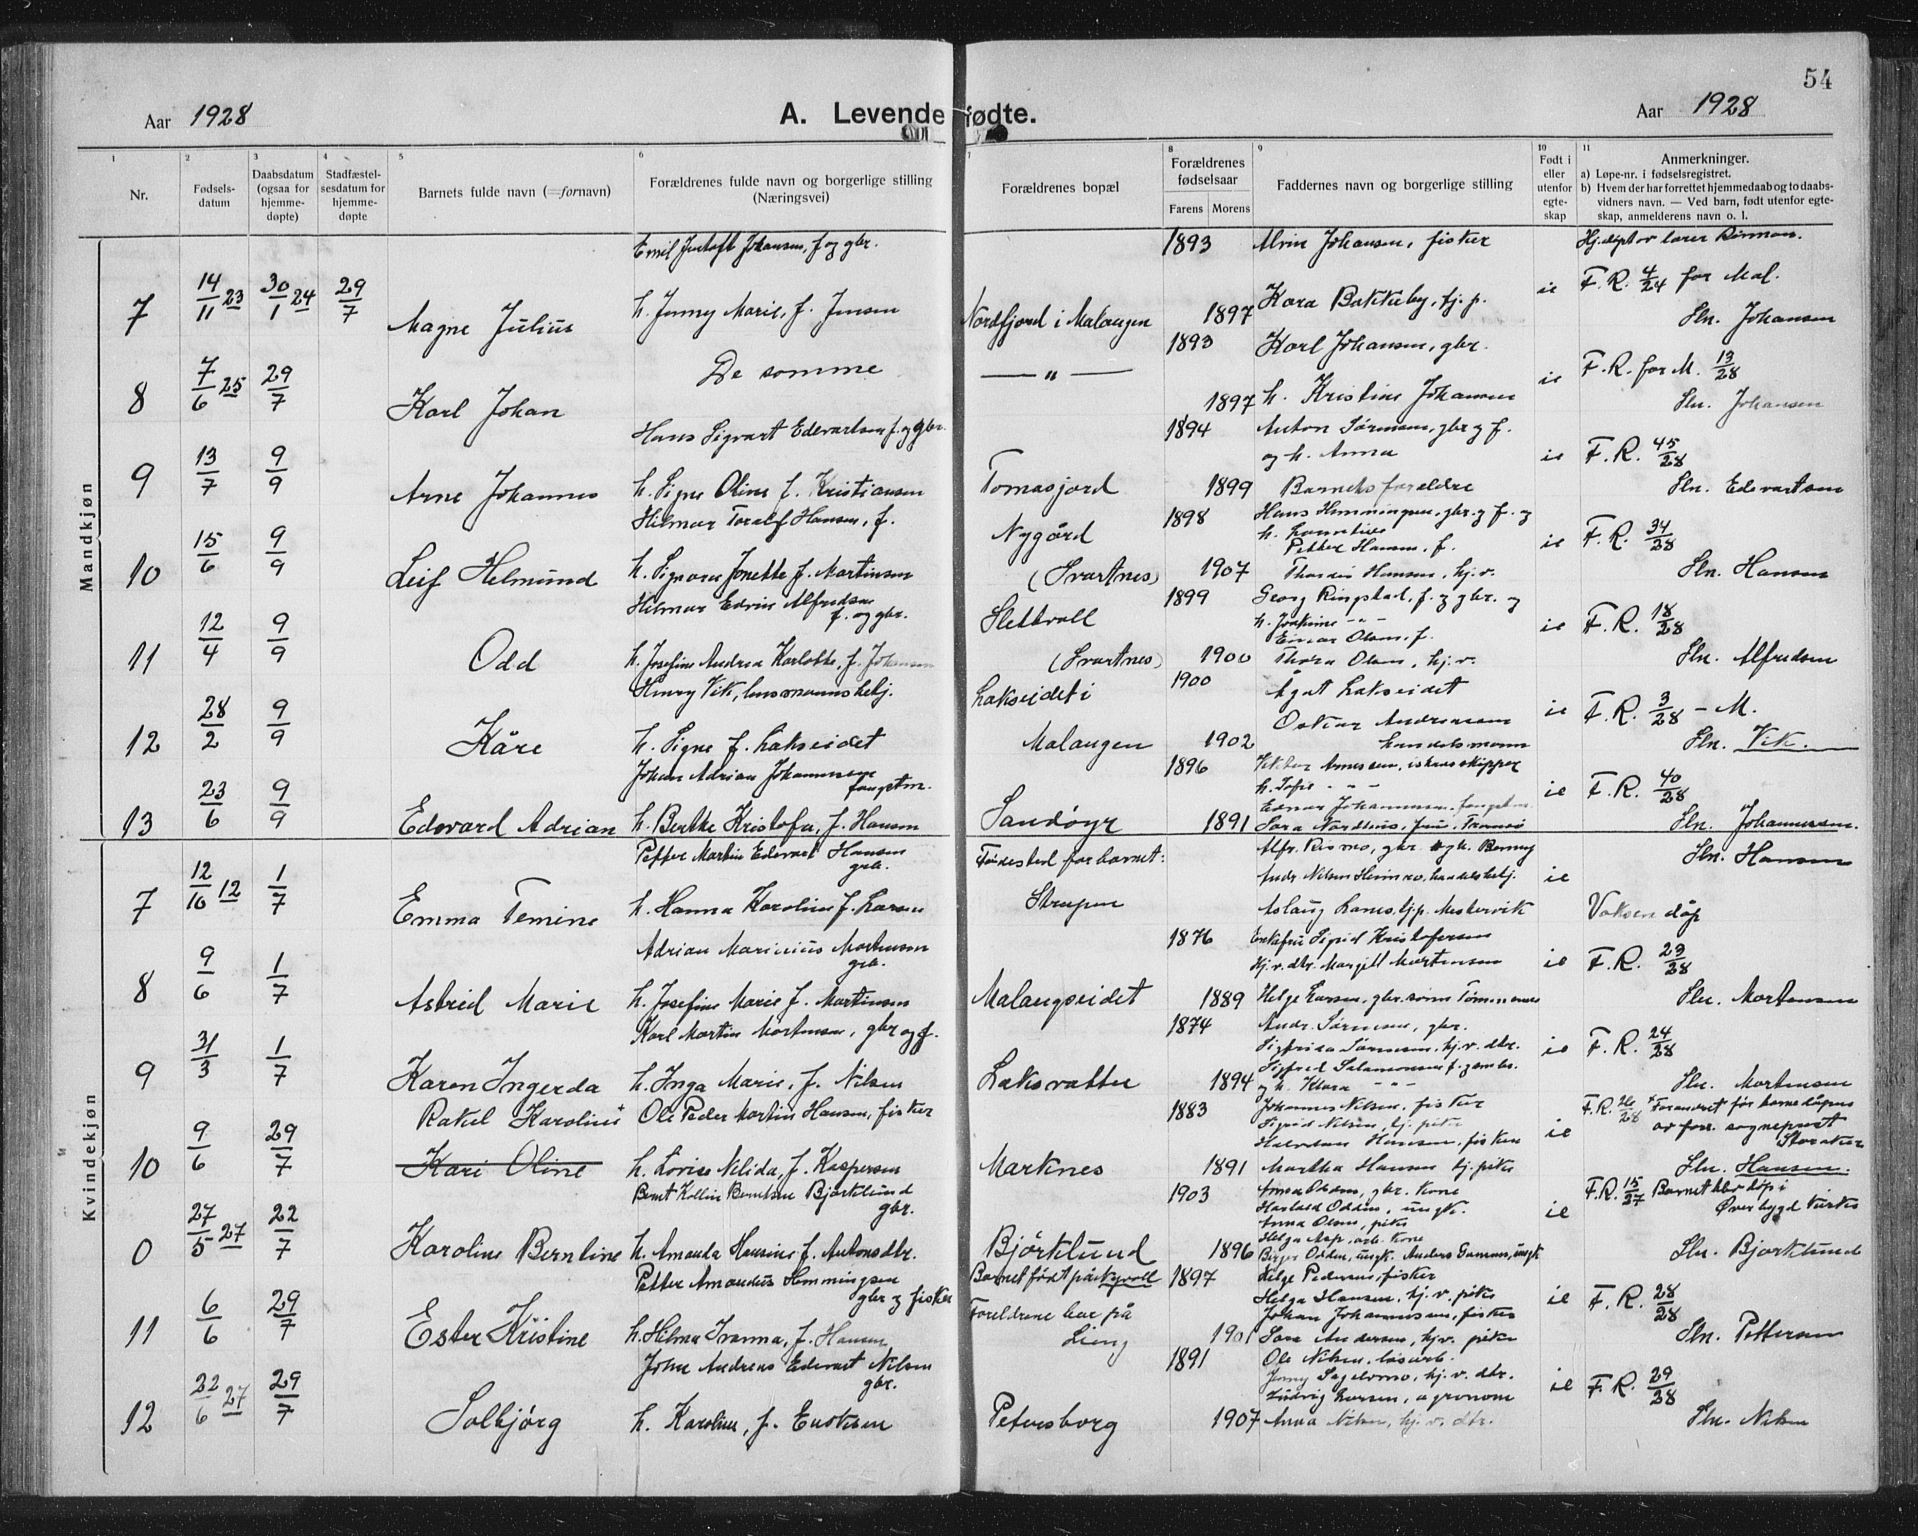 54
Aar 1928
A. Levende fødte.
Aar 1928
1 2 3 4 5 6 7 8 9 10 11
Nr.
Fødsels-
datum
Daabsdatum
(ogsaa for
hjemme-
døpte)
Stadfæstel-
sesdatum for
hjemme-
døpte
Barnets fulde navn (=fornavn)
Forældrenes fulde navn og borgerlige stilling
(Næringsvei)
Forældrenes bopæl
Forældrenes
fødselsaar
Farens Morens
Faddernes navn og borgerlige stilling
Født i
eller
utenfor
egte-
skap
Anmerkninger.
a) Løpe-nr. i fødselsregistret.
b) Hvem der har forrettet hjemmedaab og to daabs-
vidners navn. — Ved barn, født utenfor egte-
skap, anmelderens navn o. l.
Mandkjøn
Emil Johansen, f og gbr. 1893 Johansen, fisker Hj.døpt av lærer
7 14/11 23 30/1 24 29/7 Magne Julius h. Jenny Marie, f. Jensen Nordfjord i Malangen 1897 Kara Bakkeby, hj. p. ie F. R. 4/24 for Mal.
Sln. Johansen
8 7/6 25 29/7 Karl Johan De samme — " — 1893 Karl Johansen, gbr. ie F. R. for M. 13/28
1897 h. Kristine Johansen Sln. Johansen
Hans Sigvart Edvartsen f. og gbr. 1894 Anton Sørensen, gbr og f.
og h. Anna ie F. R. 45/28
9 13/7 9/9 Arne Johannes h. Signe Oline f. Kristiansen Tomasjord 1899 Barnets foreldre Sln. Edvartsen
Hilmar Toralf Hansen, f. Nygård 1898 Hans Hemmingsen, gbr. og f. og
h.
Petter Hansen, f. ie F. R. 34/28
10 15/6 9/9 Leif Helmund h. Jonette f. Martinsen (Svartnes) 1907 Hansen, hj. v. Sln. Hansen
Hilmar Edvin Alfredsen
f. og gbr. Slettvoll 1899 Georg Ringstad, f. og gbr. og
h. Joakime - " -
Einar Olsen, f. ie F. R. 18/28
11 12/4 9/9 Odd h. Josefine Andrea Karlotte, f. Johansen (Svartnes) 1900 Thora Olsen, hj. v. Sln. Alfredsen
Henry Vik, lensmannsbetj. Lakseidet i 1900 Ågot Lakseidet
12 28/2 9/9 Kåre h. Signe f. Lakseidet Malangen 1902 Oskar Andreassen
handelsmann ie F. R. 3/28 - M.
Sln. Vik.
Johan Adrian Johannessen
fangstm. 1896 Arnesen, ishavsskipper
h. Sofie - " - ie F. R. 40/28
13 23/6 9/9 Edvard Adrian h. Berthe Kristofa, f. Hansen Sandøyr 1891 Johannessen, fangstm.
Sara Nordhus, fru, Tromsø Sln. Johannessen.
Kvindekjøn
Petter Martin Edvart Hansen
grb. Fødested for barnet: Alfr. Rismo, gbr og h. Sln. Hansen
7 12/10 12 1/7 Emma Temine h. Hanna Karoline f. Larsen Strupen Andr. Nilsen handelsbetj. ie
Aslaug hj. p. Mestervik Voksen dåp
Adrian Marinius Mortensen
grb. 1876 Enkefru Sigrid Kristofersen
Hj. v. dtr. Margitt Mortensen ie F. R. 23/28
8 9/6 1/7 Astrid Marie h. Josefine Marie f. Martinsen Malangseidet 1889 Helge Larsen, gbr. sønn Tømmernes Sln. Mortensen
Karl Martin Mortensen, gbr og f. 1874 Andr. Sørensen, gbr.
Sigfrida Sørensen, hj. v. dtr. ie F. R. 24/28
9 31/3 1/7 Karen Ingerda h. Inga Marie, f. Nilsen Laksvatten 1894 Sigfred Salamonsen f.
og h. Klara - " - Sln. Mortensen
Rakel Karoline Ole Peder Martin Hansen, fisker 1883 Johannes Nilsen, fisker
Sigrid Nilsen, hj. pike F. R. 26/28 Forandret før barnedåpen
av forr. sogneprest
Storaker
10 9/6 29/7 Kari Oline h. Lovise Nelida, f. Kaspersen Marknes 1891 Halvdan Hansen, fisker ie
Martha Hansen hj. pike Sln. Hansen.
Bernt Kollin Berntsen Bjørklund
gbr. 1903 gbr. kone
Harald Odden, ungk. F. R. 15/27 Barnet blev døpt i
Øverbygd kirke
0 27/5 27 22/7 Karoline Berntine h. Amanda Hansine f. Antonsdtr. Bjørklund 1896 Anna Olsen, pike
Helga Asp, arb. kone
Birger Odden, ungk. Anders Gamnes, ungk ie Sln. Bjørklund
Petter Amandus Hemmingsen
gbr og fisker Barnet født på Nyvoll 1897 Helge Pedersen, fisker
Helga Hansen, hj. v. pike ie F. R. 28/28
11 6/6 29/7 Ester Kristine h. Hilma Ivanna, f. Hansen Foreldrene bor på
Lieng 1901 Johan Johannessen, fisker
Sara Andersen, hj v. pike Sln. Pettersen
John Andreas Edvart Nilsen
gbr. 1891 Ole Nilsen, løsarb.
Jenny Sagelvmo, hj. v. dtr. ie F. R. 29/28
12 22/6 27 29/7 Solbjørg h. Karoline, f. Petersborg 1907 Ludvig Larsen, agronom
Anna Nilsen, hj. v. dtr. Sln. Nilsen